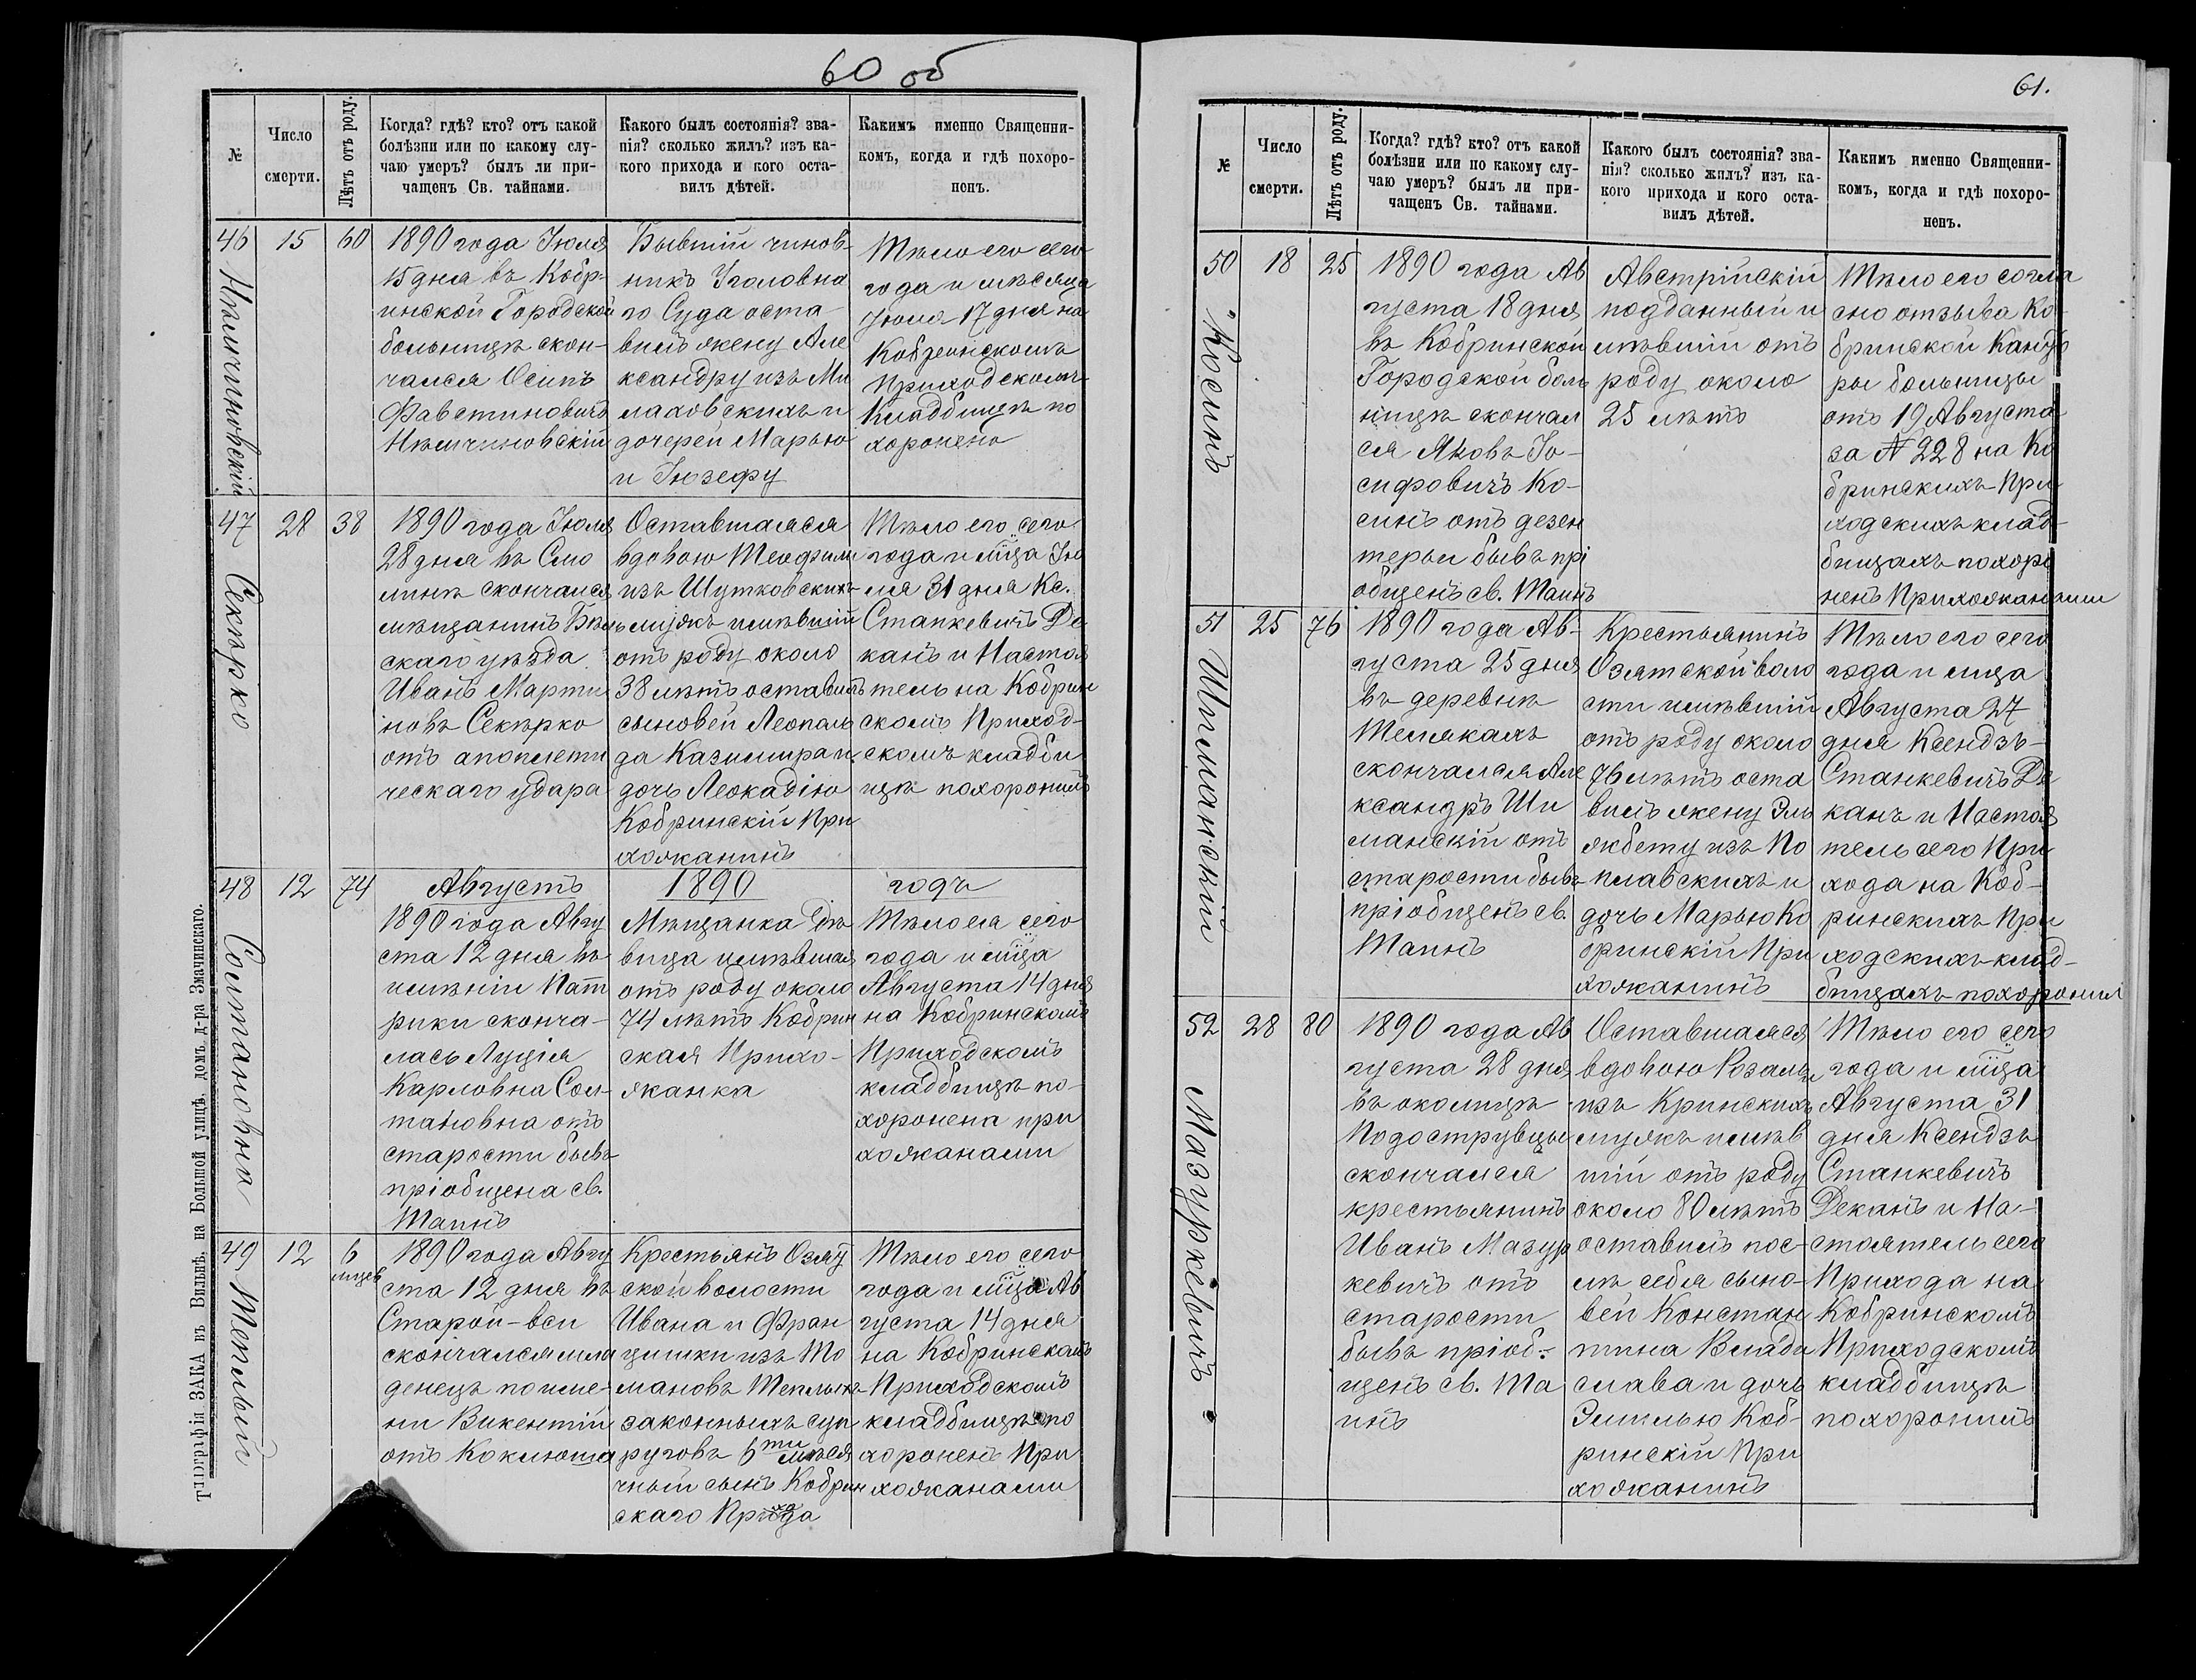 60 об
№
Число
смерти.
Лѣтъ отъ роду.
Когда? гдѣ? кто? отъ какой
болѣзни или по какому слу-
чаю умеръ? былъ ли при-
чащенъ Св. тайнами.
Какого былъ состоянія? зва-
нія? сколько жилъ? изъ ка-
кого прихода и кого оста-
вилъ дѣтей.
Какимъ именно Священни-
комъ, когда и гдѣ похоро-
ненъ.
46
Нѣмчиновскій
15
60
1890 года Іюля
15 дня въ Кобр-
инской Городской
больницѣ скон-
чался Осипъ
Фавстиновичъ
Нѣмчиновскій
Бывшій чинов-
никъ Уголовна
го Суда оста-
вилъ жену Але
ксандру изъ Ми
лаховскихъ и
дочерей Марью
и Іюзефу
Тѣло его сего
года и мѣсяца
Іюля 17 дня на
Кобринскомъ
Приходскомъ
Кладбищѣ по
хоронено
47
Секѣрко
28
38
1890 года Іюля
28 дня въ Сло
линѣ скончался
мѣщанинъ Бѣль
скаго уѣзда
Иванъ Марти
новъ Секѣрко
отъ апоплети
ческаго удара
Оставшаяся
вдовою Теофили
изъ Шутковскихъ
мужъ имѣвшій
отъ роду около
38 лѣтъ оставилъ
сыновей Леополь
да Казимира и
дочь Леокадію
Кобринскій При
хожанинъ
Тѣло его сего
года и мца Ію
ля 31 дня Кс.
Станкевичъ Де
канъ и Настоя
тель на Кобрин
скомъ Приход-
скомъ кладби
щѣ похоронилъ
48
Солтановна
12
74
Августъ
1890
годъ
1890 года Авгу
ста 12 дня въ
имѣніи Пат
рики сконча-
лась Луція
Карловна Сол-
тановна отъ
старости бывъ
пріобщена св.
Таинъ
Мѣщанка Дѣ
вица имѣвшая
отъ роду около
74 лѣтъ Кобрин
ская Прихо-
жанка
Тѣло ея сего
года и мца
Августа 14 дня
на Кобринскомъ
Приходскомъ
кладбищѣ по-
хоронена при
хожанами
49
Теплый
12
6
мцев
1890 года Авгу
ста 12 дня въ
Старой-вси
скончался мла
денецъ по име-
ни Викентій
отъ Коклюша
Крестьянъ Озят
ской волости
Ивана и Фран
цишки изъ То
мановъ Теплыхъ
законныхъ суп
руговъ 6ти мѣся
чный сынъ Кобрин
скаго Прихода
Тѣло его сего
года и мца Ав
густа 14 дня
на Кобринскомъ
Приходскомъ
кладбищѣ по
хороненъ При
хожанами
Типографія ЗАКА въ Вильнѣ, на Большой улицѣ, домъ д-ра Змачинскаго.
61.
№
Число
смерти.
Лѣтъ отъ роду.
Когда? гдѣ? кто? отъ какой
болѣзни или по какому слу-
чаю умеръ? былъ ли при-
чащенъ Св. тайнами.
Какого былъ состоянія? зва-
нія? сколько жилъ? изъ ка-
кого прихода и кого оста-
вилъ дѣтей.
Какимъ именно Священни-
комъ, когда и гдѣ похоро-
ненъ.
50
Косинъ
18
25
1890 года Ав
густа 18 дня
въ Кобринской
Городской боль
ницѣ скончал
ся Яковъ Іо-
сифовичъ Ко-
синъ отъ дезен
терьи бывъ прі
общенъ св. Таинъ
Австрійскій
подданный и
мѣвшій отъ
роду около
25 лѣтъ
Тѣло его согла
сно отзыва Ко-
бринской Канто
ры больницы
отъ 19 Августа
за № 228 на Ко
бринскихъ При
ходскихъ клад-
бищахъ похоро
ненъ Прихожанами
51
Шиманскій
25
76
1890 года Ав-
густа 25 дня
въ деревнѣ
Темякахъ
скончался Але
ксандръ Ши
манскій отъ
старости бывъ
пріобщенъ св.
Таинъ
Крестьянинъ
Озятской воло
сти имѣвшій
отъ роду около
76 лѣтъ оста
вилъ жену Эль
жбету изъ По
плавскихъ и
дочь Марью Ко
бринскій При
хожанинъ
Тѣло его сего
года и мца
Августа 27
дня Ксендзъ
Станкевичъ Де
канъ и Настоя
тель сего При
хода на Коб-
ринскихъ При
ходскихъ клад-
бищахъ похоронилъ
52
Мазуркевичъ
28
80
1890 года Ав
густа 28 дня
въ околицѣ
Подоструѣцы
скончался
крестьянинъ
Иванъ Мазур
кевичъ отъ
старости
бывъ пріоб-
щенъ св. Та
инъ
Оставшаяся
вдовою Розалъи
изъ Кринскихъ
мужъ имѣв
шій отъ роду
около 80 лѣтъ
оставилъ пос-
лѣ себя сыно-
вей Констан
тина Влади
слава и дочь
Эмилью Коб-
ринскій При
хожанинъ
Тѣло его сего
года и мца
Августа 31
дня Ксендзъ
Станкевичъ
Деканъ и На-
стоятель сего
Прихода на
Кобринскомъ
Приходскомъ
кладбищѣ
похоронилъ